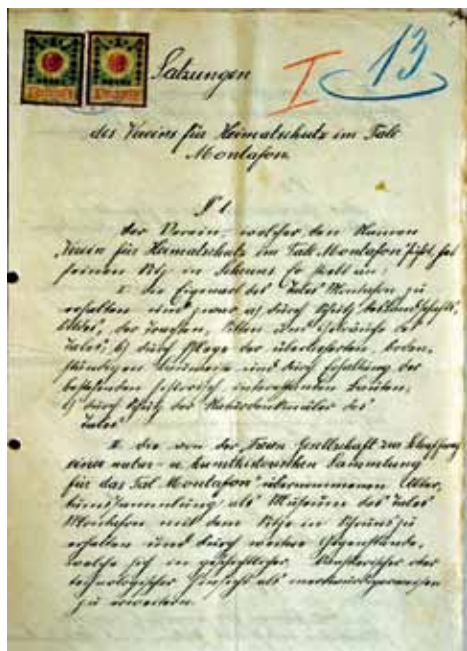 Satzungen
I 13
des Vereins für Heimatschutz im Tale
Montafon.
§ 1.
Der Verein, welcher den Namen
"Verein für Heimatschutz im Tale Montafon" führt, hat
seinen Sitz in Schruns. Er stellt
I. die Eigenart des Tales Montafon zu
erhalten und zwar a) durch Schutz des Landschafts-
bildes, der Trachten, Sitten und Gebräuche des
Tales; b) durch Pflege der überlieferten, boden-
ständigen Bauweise und durch Erhaltung der
bestehenden historisch interessanten Bauten;
c) durch Schutz der Naturdenkmäler des
Tales.
II. die von der Gesellschaft zur Schaffung
einer natur- u. kunsthistorischen Sammlung
für das Tal Montafon" übernommene Alter-
tumssammlung als Museum des Tales
Montafon mit dem Sitze in Schruns zu
erhalten und durch weitere Gegenstände,
welche sich in geschichtlicher, künstlerischer oder
technologischer Hinsicht als merkwürdig erweisen
zu erweitern.